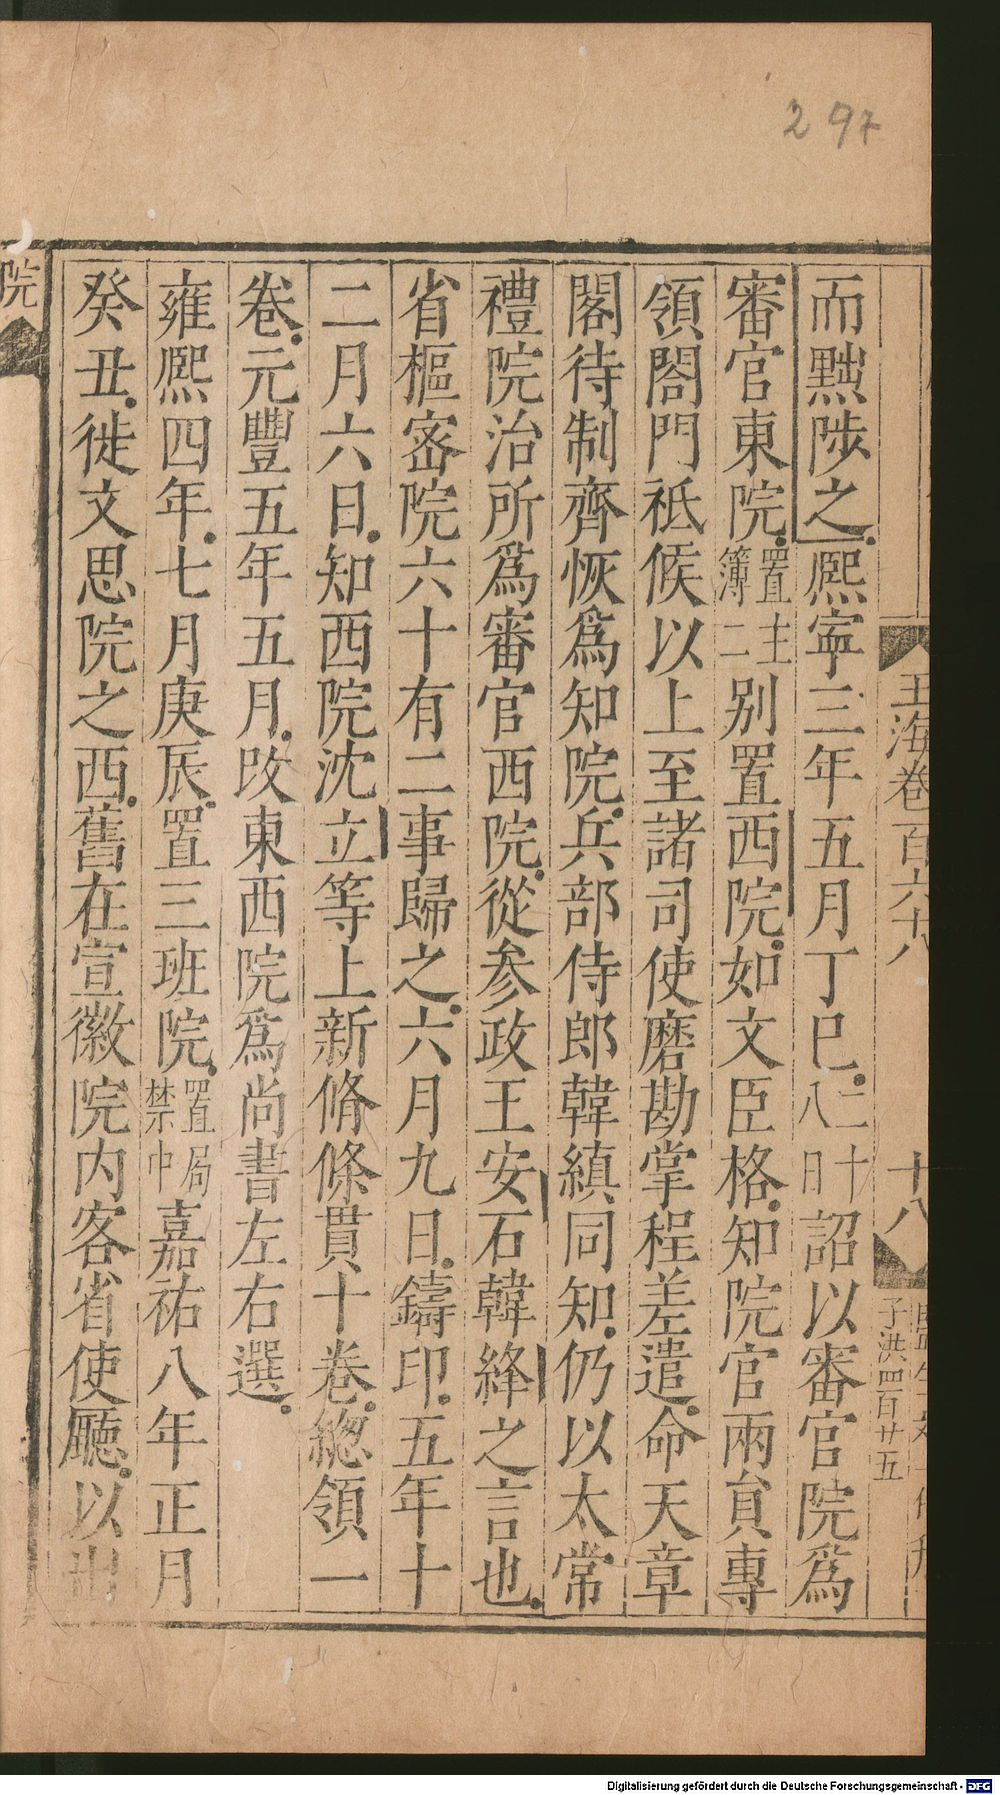 297
玉海卷百六十八
十八
子洪四百廿五
而黜陟之熙寧三年五月丁巳二十八日詔以審官院爲
審官東院置主簿二别置西院如文臣格知院官兩負專
領閤門祗候以上至諸司使磨勘掌程差遣命天章
閣待制齊恢爲知院兵部侍郎韓縝同知仍以太常
禮院治所爲審官西院從参政王安石韓絳之言也
省樞宻院六十有二事歸之六月九日鑄印五年十
二月六日知西院沈立等上新脩條貫十卷緫領一
卷元豐五年五月改東西院爲尚書左右選
雍熙四年七月庚辰置三班院置局禁中嘉祐八年正月
癸丑徙文思院之西舊在宣徽院内客省使廳以出
院
Digitalisierung gefördert durch die Deutsche Forschungsgemeinschaft - DFG